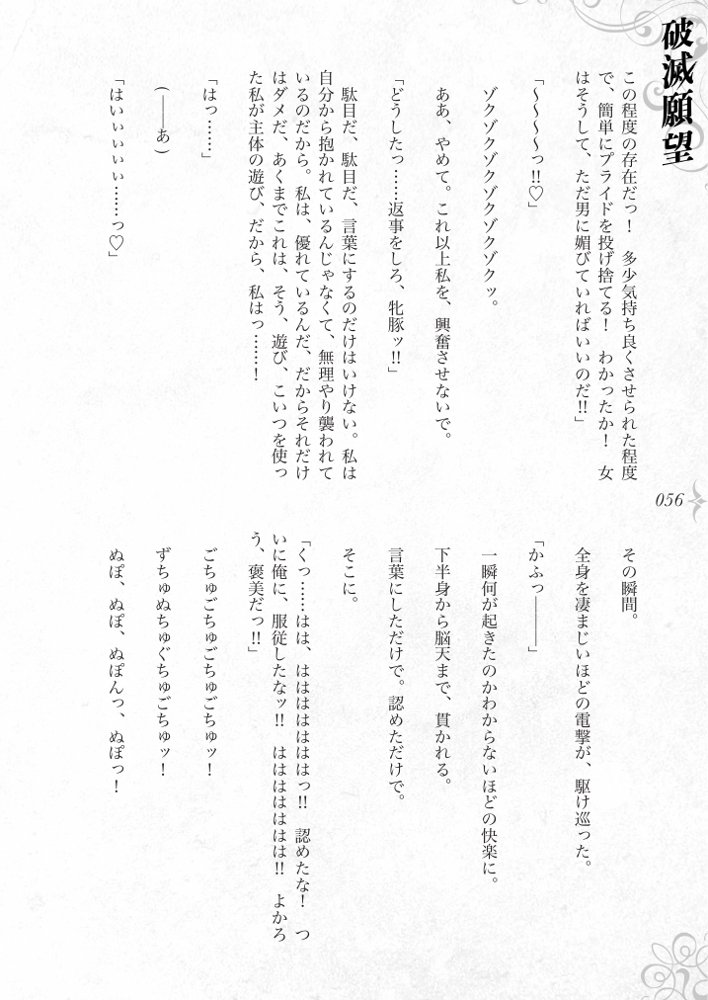 破滅願望
この程度の存在だっ！　多少気持ち良くさせられた程度
で、簡単にプライドを投げ捨てる！　わかったか！　女
はそうして、ただ男に媚びていればいいのだ!!」
「～～～～っ!!♡」
ゾクゾクゾクゾクゾクゾクッ。
ああ、やめて。これ以上私を、興奮させないで。
「どうしたっ……返事をしろ、牝豚ッ!!」
駄目だ、駄目だ、言葉にするのだけはいけない。私は
自分から抱かれているんじゃなくて、無理やり襲われて
いるのだから。私は、優れているんだ、だからそれだけ
はダメだ、あくまでこれは、そう、遊び、こいつを使っ
た私が主体の遊び、だから、私はっ……！
「はっ……」
(――あ)
「はいぃぃぃぃ……っ♡」
056
その瞬間。
全身を凄まじいほどの電撃が、駆け巡った。
「かふっ――――」
一瞬何が起きたのかわからないほどの快楽に。
下半身から脳天まで、貫かれる。
言葉にしただけで。認めただけで。
そこに。
「くっ……はは、はははははははっ!!　認めたな！　つ
いに俺に、服従したなッ!!　はははははははは!!　よかろ
う、褒美だっ!!」
ごちゅごちゅごちゅごちゅッ！
ずちゅぬちゅぐちゅごちゅッ！
ぬぽ、ぬぽ、ぬぽんっ、ぬぽっ！